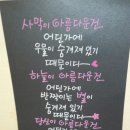 사막이 아름다운건..
어딘가에
우물이 숨겨져 있기
때문이다
하늘이 아름다운건
어딘가에
반짝이는 별이
숨겨져 있기
때문이다
당신이 아름다운건..
어딘가에